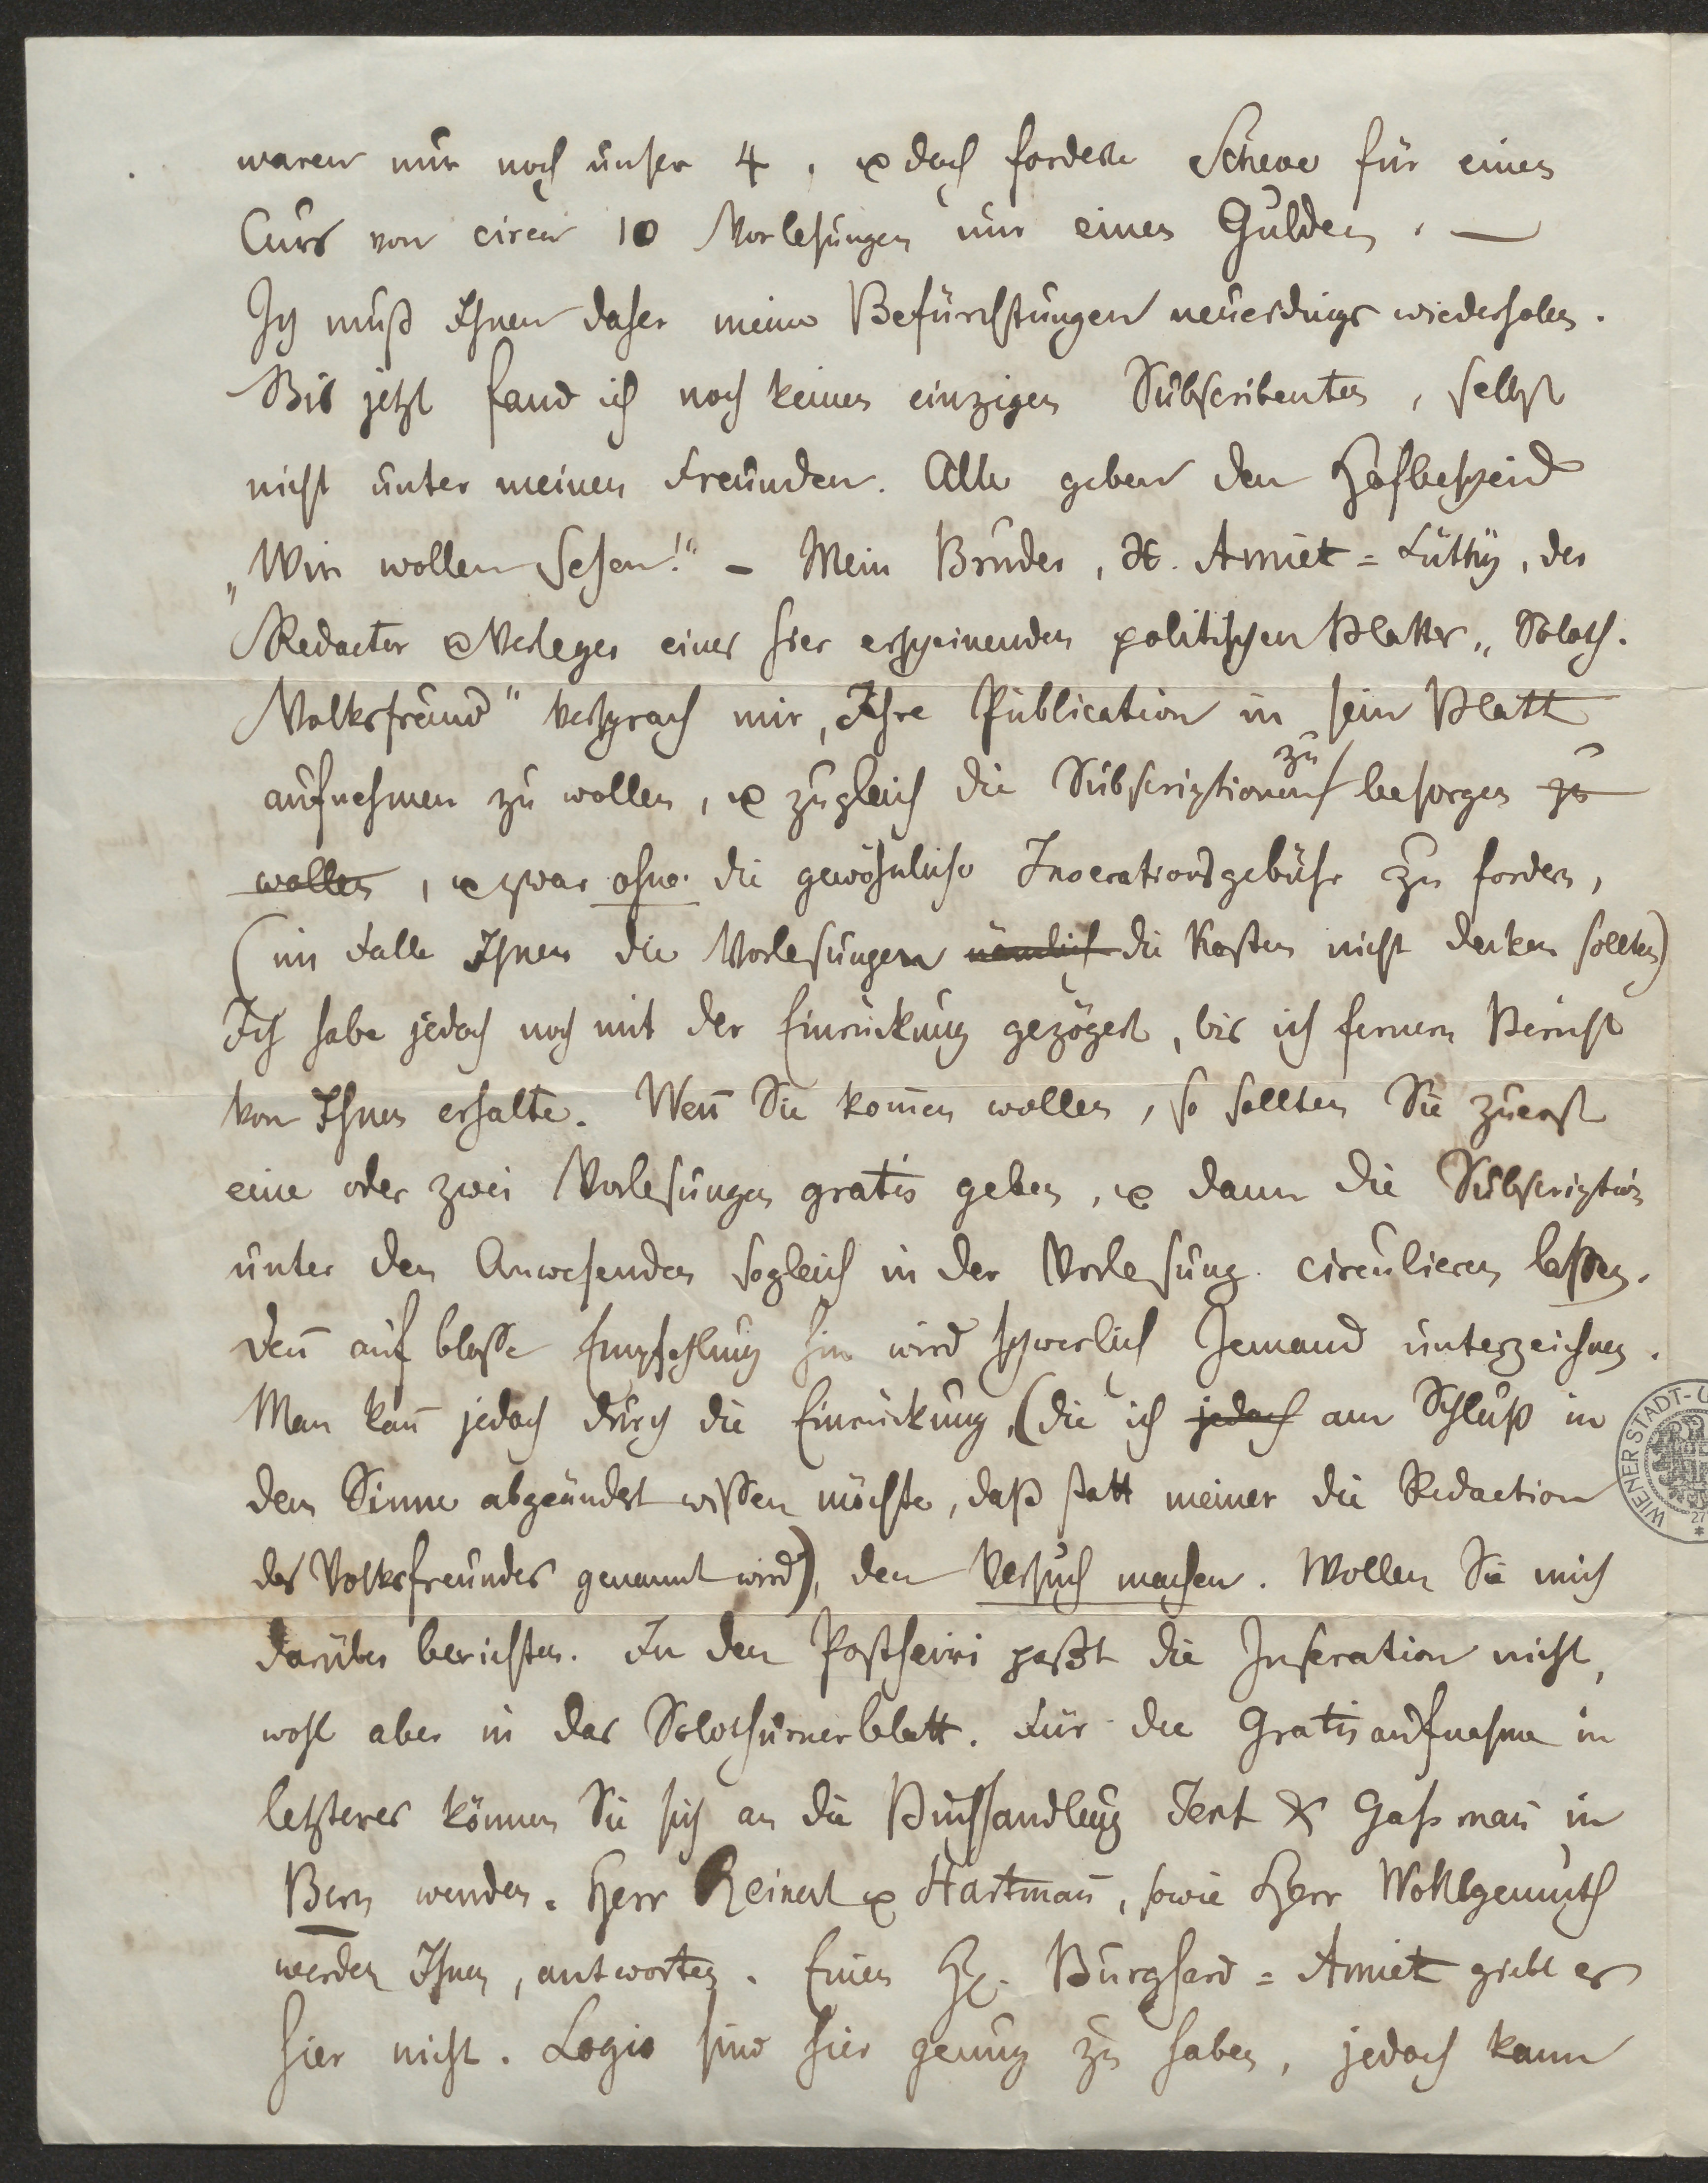 waren nur noch unser 4, & doch forderte Scheve für einen
Curs von circa 10 Vorlesungen nur einen Gulden. —
Ich muß Ihnen daher meine Befürchtungen neuerdings wiederholen.
Bis jetzt fand ich noch keinen einzigen Subscribenten, selbst
nicht unter meinen Freunden. Alle geben den Hofbescheid
„Wir wollen sehen!" – Mein Bruder, H. Amiet=Lüthy, der
Redactor & Verleger eines hier erscheinenden politischen Blattes „Soloth.
Volksfreund" versprach mir, Ihre Publication in sein Blatt
aufnehmen zu wollen, & zugleich die Subscriptionen zu besorgen zu
wollen, & zwar ohne die gewöhnliche Inserationsgebühr zu fordern,
(im Falle Ihnen die Vorlesungen nämlich die Kosten nicht decken sollten)
Ich habe jedoch noch mit der Einrückung gezögert, bis ich fernern Bericht
von Ihnen erhalte. Weñ Sie kom̃en wollen, so sollten Sie zuerst
eine oder zwei Vorlesungen gratis geben, & dann die Subscription
unter den Anwesenden sogleich in der Vorlesung circulieren laßen.
Deñ auf blosse Empfehlung hin wird schwerlich Jemand unterzeichnen.
Man kañ jedoch durch die Einrückung, (die ich jedoch am Schluß in
dem Sinne abgeändert wissen möchte, daß statt meiner die Redaction
des Volksfreundes genannt wird), den Versuch machen. Wollen Sie mich
darüber berichten. In den Postheiri paßt die Inseration nicht,
wohl aber in das Solothurnerblatt. Für die Gratisaufnahme in
letzteres können Sie sich an die Buchhandlung Jent & Gaßmañ in
Bern wenden. Herr Reinert & Hartmañ, sowie Herr Wohlgemuth
werden Ihnen, antworten. Einen Hr. Burghard=Amiet giebt es
hier nicht. Logis sind hier genug zu haben, jedoch kann
WIENER STADT-
27